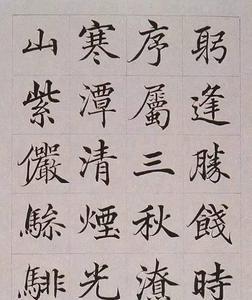 躬逢勝餞時
序屬三秋潦
寒潭清煙光
山紫儼驂騑